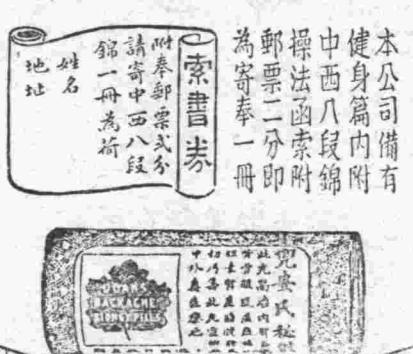 本公司備有
健身篇內附
中西八段錦
操法函索附
郵票二分即
為寄奉一冊
索書券
附奉郵票弍分
請寄中西八段
錦一冊為荷
姓名
地址
兜安氏秘
DOANS
BACKACHE
KIDNEY PILLS